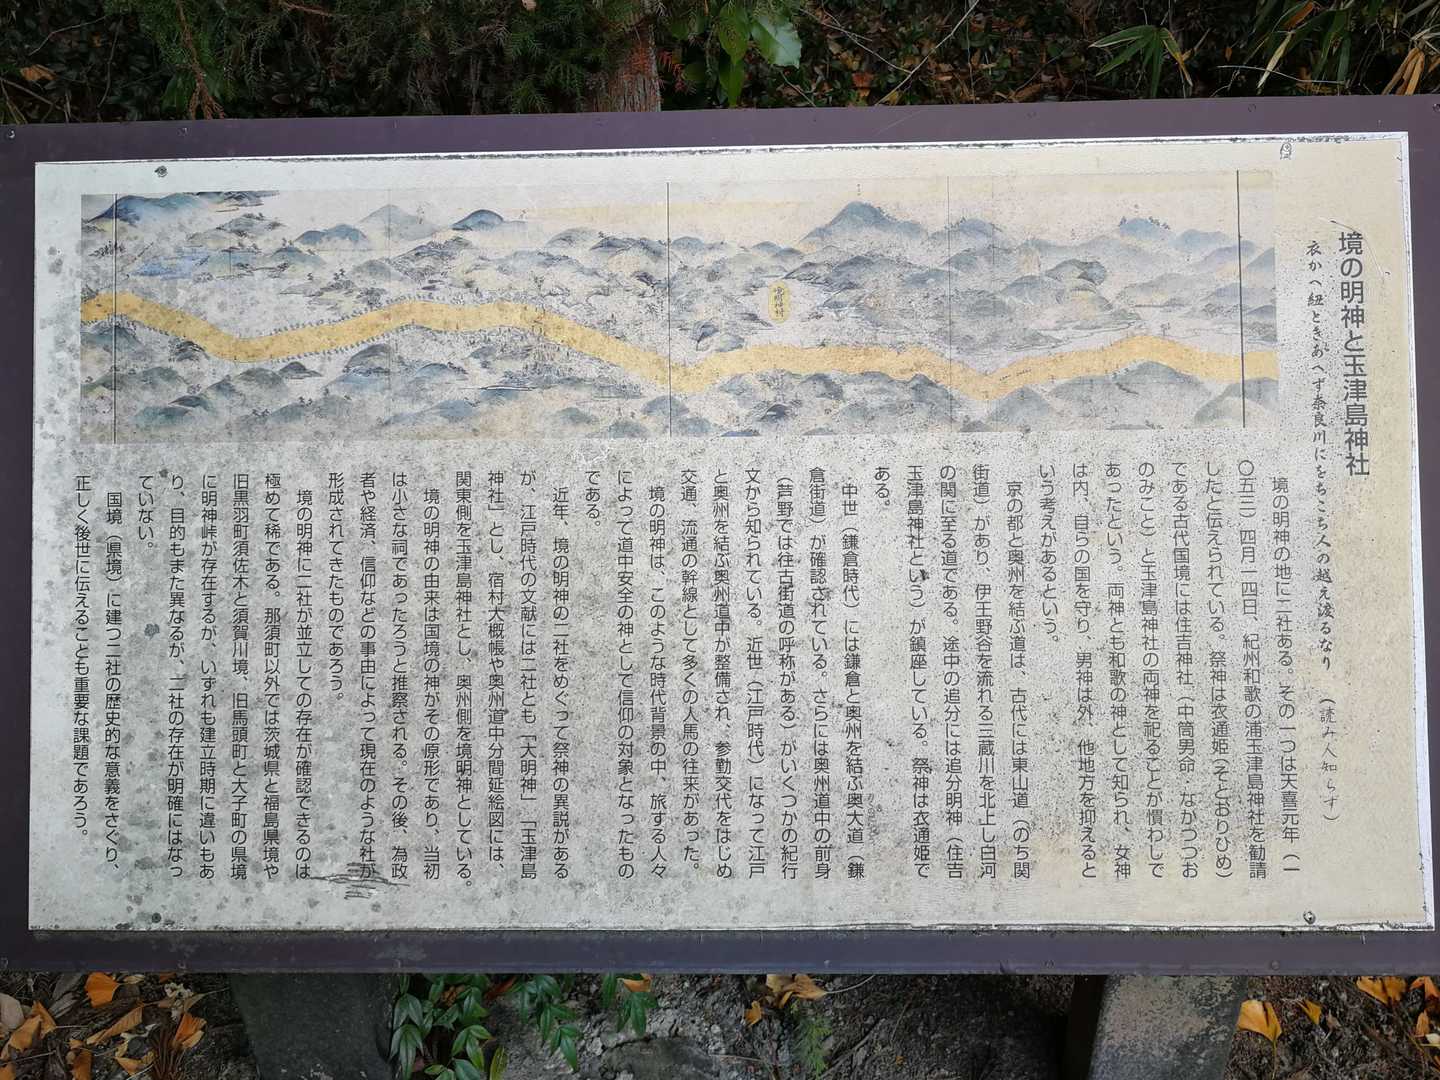 境の明神と玉津島神社
衣かへ紐ときあへず奈良川にをちこち人の越え渡るなり (読み人知らず)
境明神村
境の明神の地に二社ある。その一つは天喜元年(一
〇五三)四月一四日、紀州和歌の浦玉津島神社を勧請
したと伝えられている。祭神は衣通姫(そとおりひめ)
である古代国境には住吉神社(中筒男命・なかつつお
のみこと)と玉津島神社の両神を祀ることが慣わしで
あったという。両神とも和歌の神として知られ、女神
は内、自らの国を守り、男神は外、他地方を抑えると
いう考えがあるという。
京の都と奥州を結ぶ道は、古代には東山道(のち関
街道)があり、伊王野谷を流れる三蔵川を北上し白河
の関に至る道である。途中の追分には追分明神(住吉
玉津島神社という)が鎮座している。祭神は衣通姫で
ある。
中世(鎌倉時代)には鎌倉と奥州を結ぶ奥大道(鎌
倉街道)が確認されている。さらには奥州道中の前身
(芦野では往古街道の呼称がある)がいくつかの紀行
文から知られている。近世(江戸時代)になって江戸
と奥州を結ぶ奥州道中が整備され、参勤交代をはじめ
交通、流通の幹線として多くの人馬の往来があった。
境の明神は、このような時代背景の中、旅する人々
によって道中安全の神として信仰の対象となったもの
である。
近年、境の明神の二社をめぐって祭神の異説がある
が、江戸時代の文献には二社とも「大明神」「玉津島
神社」とし、宿村大概帳や奥州道中分間延絵図には、
関東側を玉津島神社とし、奥州側を境明神としている。
境の明神の由来は国境の神がその原形であり、当初
は小さな祠であったろうと推察される。その後、為政
者や経済、信仰などの事由によって現在のような社が
形成されてきたものであろう。
境の明神に二社が並立しての存在が確認できるのは
極めて稀である。那須町以外では茨城県と福島県境や
旧黒羽町須佐木と須賀川境、旧馬頭町と大子町の県境
に明神峠が存在するが、いずれも建立時期に違いもあ
り、目的もまた異なるが、二社の存在が明確にはなっ
ていない。
国境(県境)に建つ二社の歴史的な意義をさぐり、
正しく後世に伝えることも重要な課題であろう。